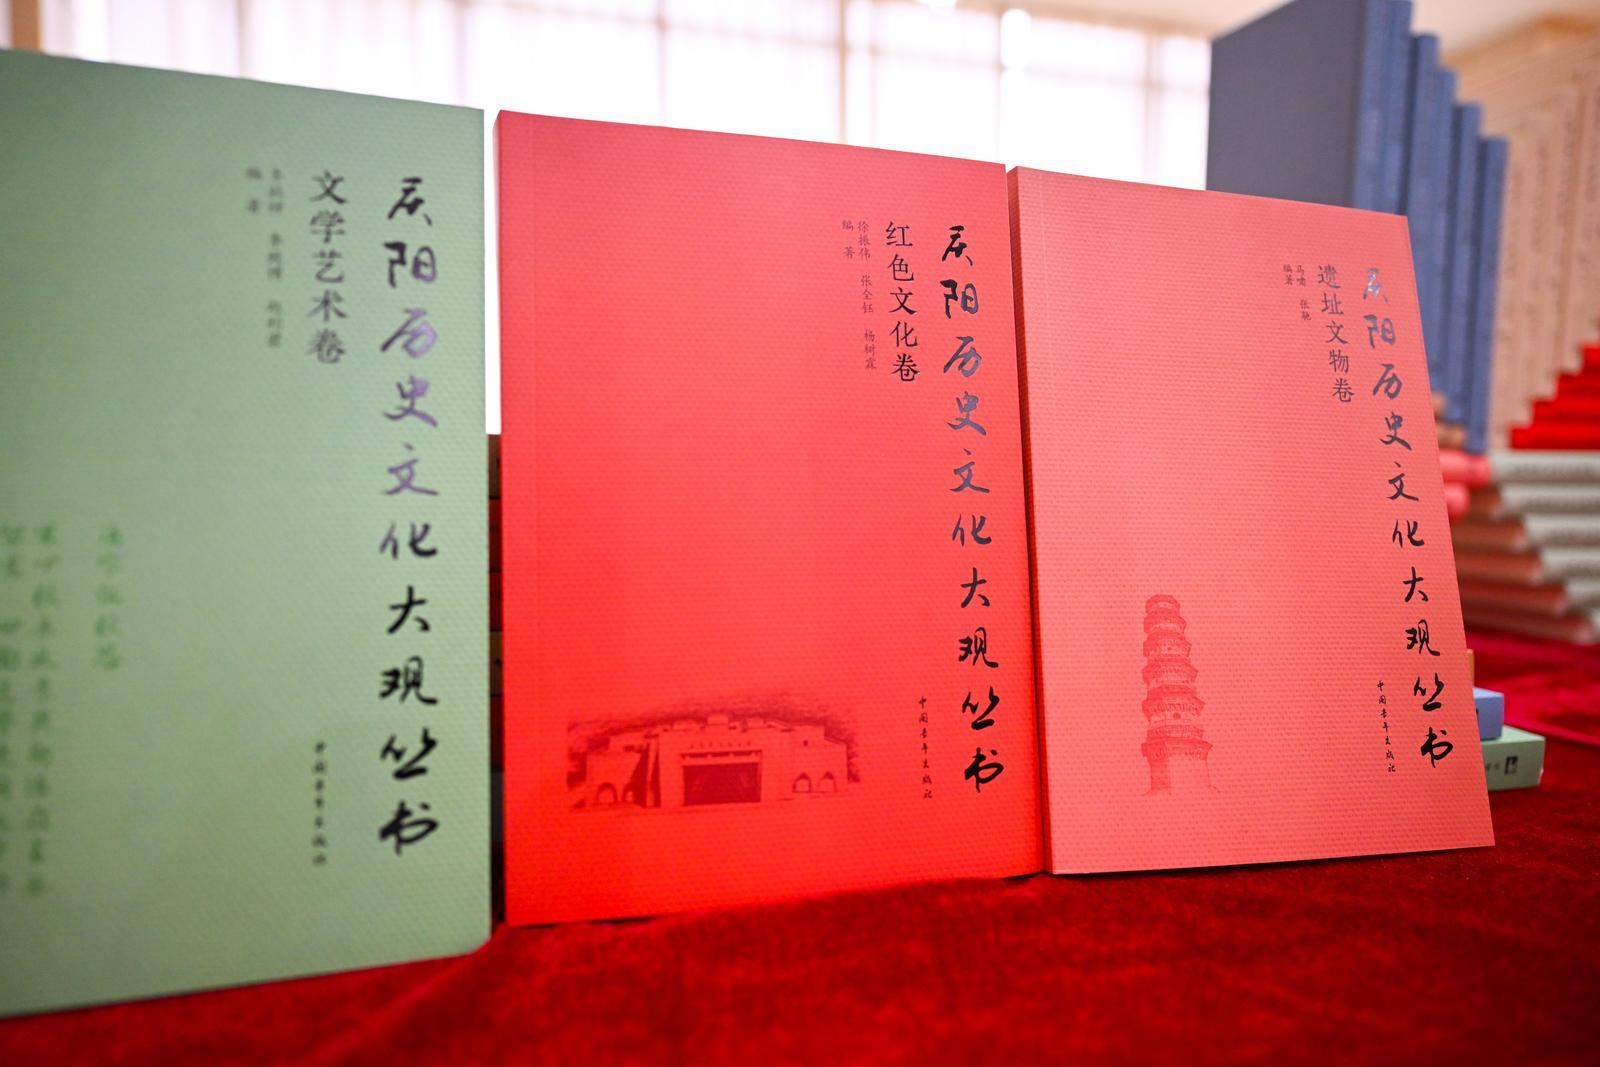 庆阳历史文化大观丛书
文学艺术卷
编著
中国青年出版社
庆阳历史文化大观丛书
红色文化卷
徐振伟 张全钰 杨树霖
编著
中国青年出版社
庆阳历史文化大观丛书
遗址文物卷
马啸 张驰
编著
中国青年出版社